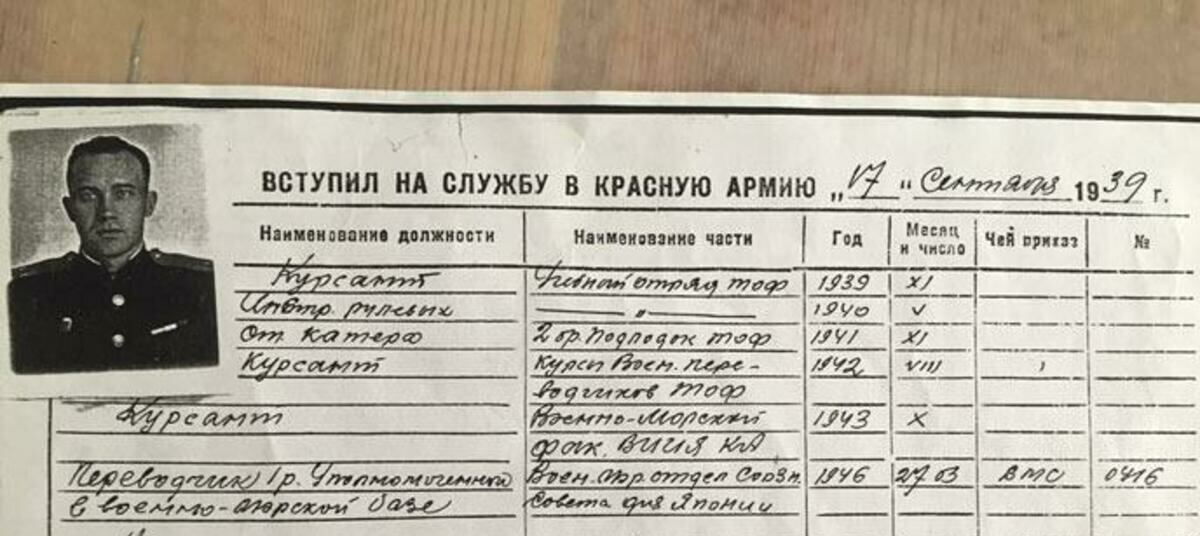 ВСТУПИЛ НА СЛУЖБУ В КРАСНУЮ АРМИЮ „17" Сентября 1939 г.
Наименование должности Наименование части Год Месяц и число Чей приказ №
Курсант Учебный отряд ТОФ 1939 XI
рулевых — " — 1940 V
Ст. катера 2 бр. Подлодок ТОФ 1941 XI
Курсант Курсы Воен. пере- 1942 VIII
водчиков ТОФ
Курсант Военно-Морской 1943 X
фак. ВИИЯ КА
Переводчик 1 р. Воен. мор отдел Союзн. 1946 27 03 ВМС 0416
в военно-морской базе Совета для Японии